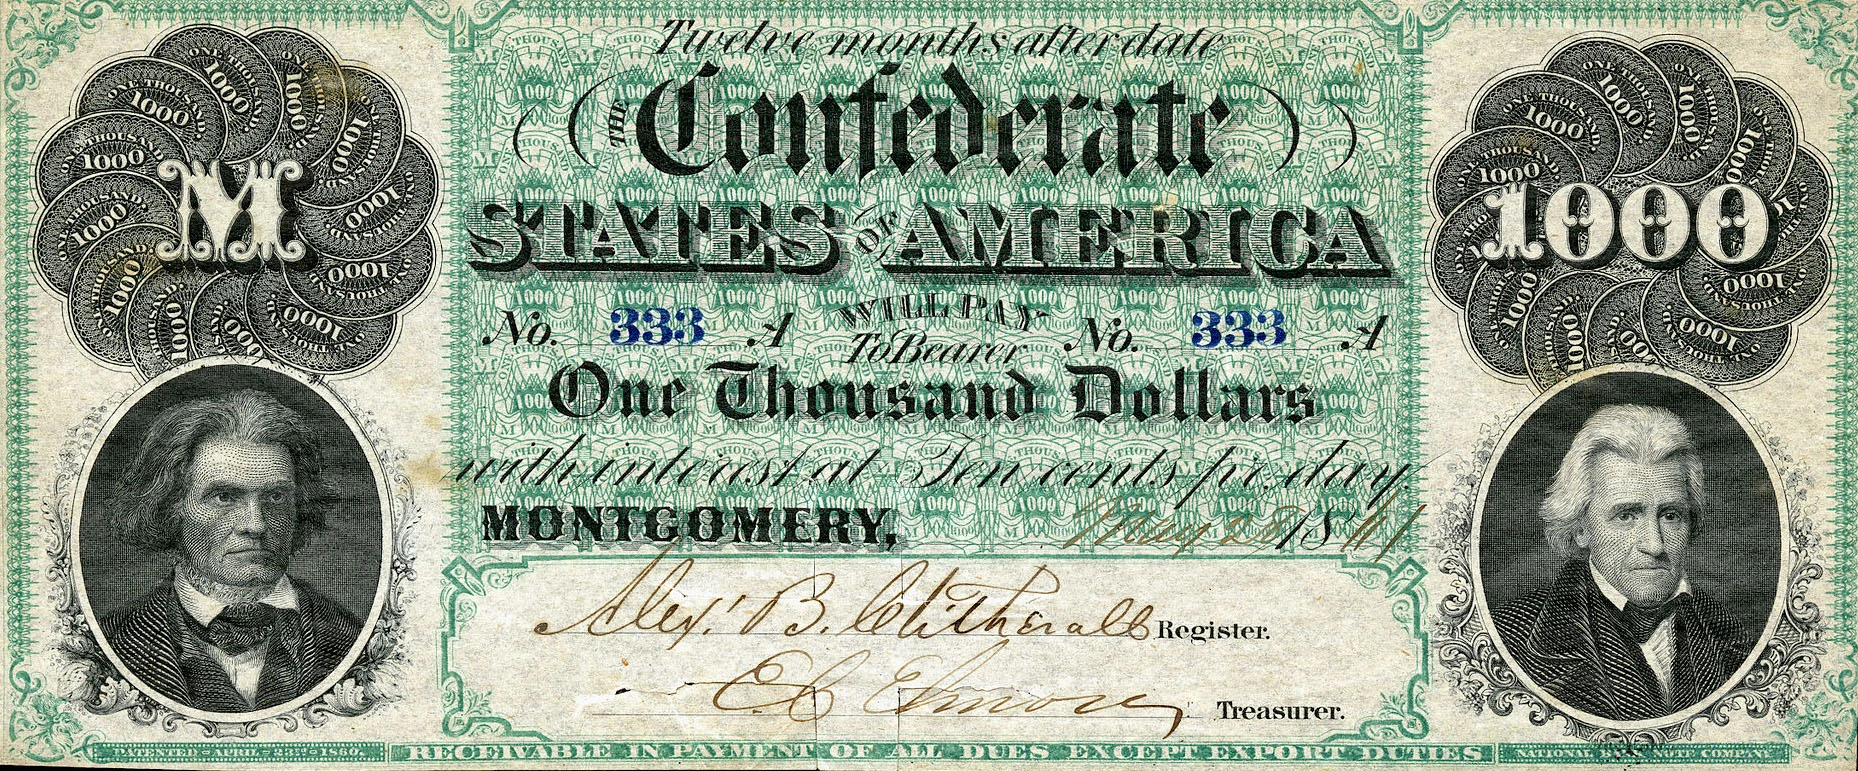 Twelve months after date
THE Confederate
STATES OF AMERICA
No. 333 A WILL PAY To Bearer No. 333 A
One Thousand Dollars
with interest at Ten cents pr. day.
MONTGOMERY, May 28 1861
Alex. B. Clitherall Register.
E C Elmore Treasurer.
M
1000
ONE THOUSAND 1000
PATENTED APRIL 23RD 1860.
RECEIVABLE IN PAYMENT OF ALL DUES EXCEPT EXPORT DUTIES
NATIONAL COMPANY